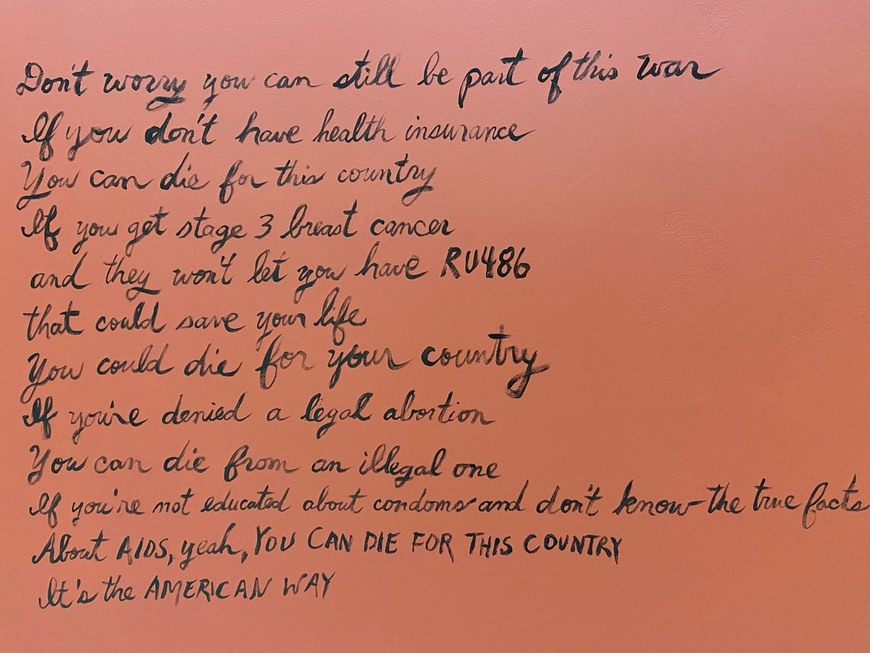 Don't worry you can still be part of this war
If you don't have health insurance
You can die for this country
If you get stage 3 breast cancer
and they won't let you have RU486
that could save your life
You could die for your country
If you're denied a legal abortion
You can die from an illegal one
If you're not educated about condoms and don't know the true facts
About AIDS, yeah, YOU CAN DIE FOR THIS COUNTRY
It's the AMERICAN WAY